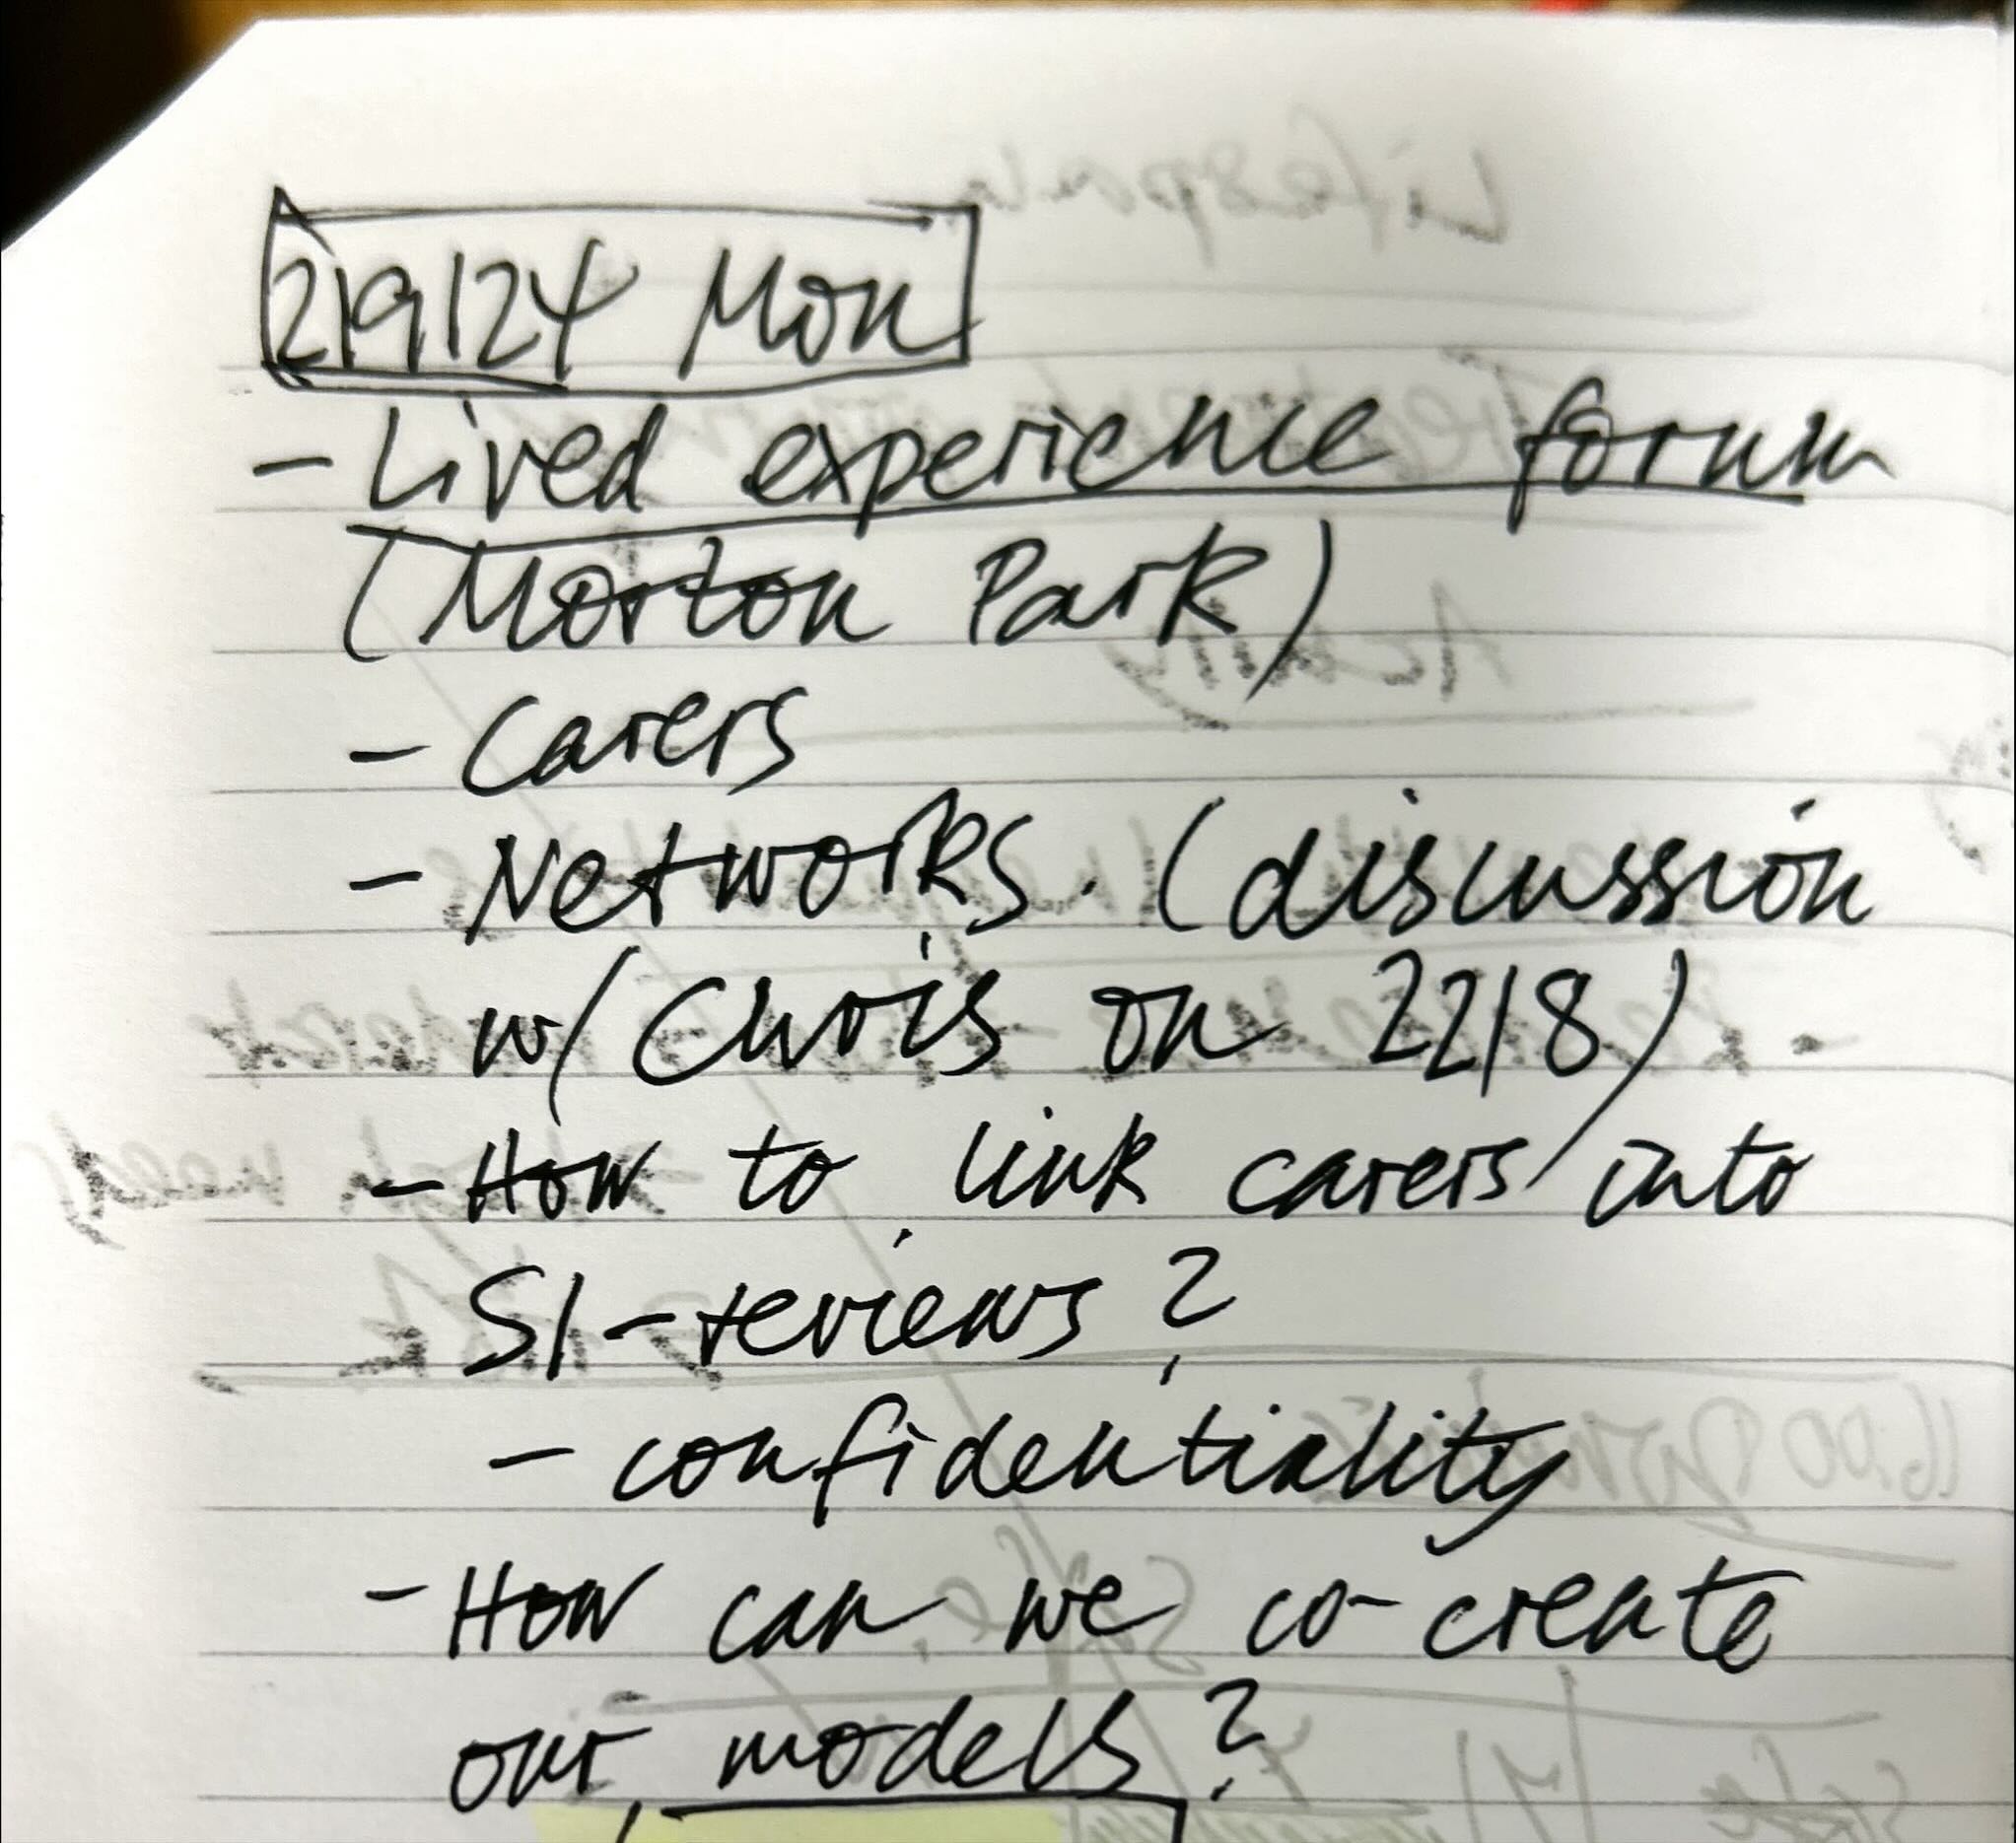 2/9/24 Mon
- Lived experience forum
(Morton Park)
- Carers
- Networks. (discussion
w/ Chris on 22/8)
- How to link carers into
SI-reviews?
- confidentiality
- How can we co-create
our models?